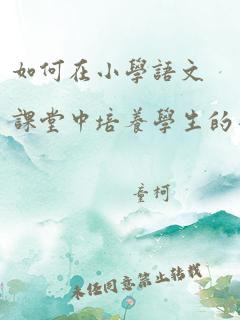 如何在小學語文
課堂中培養學生的
童柯
未經同意禁止轉載